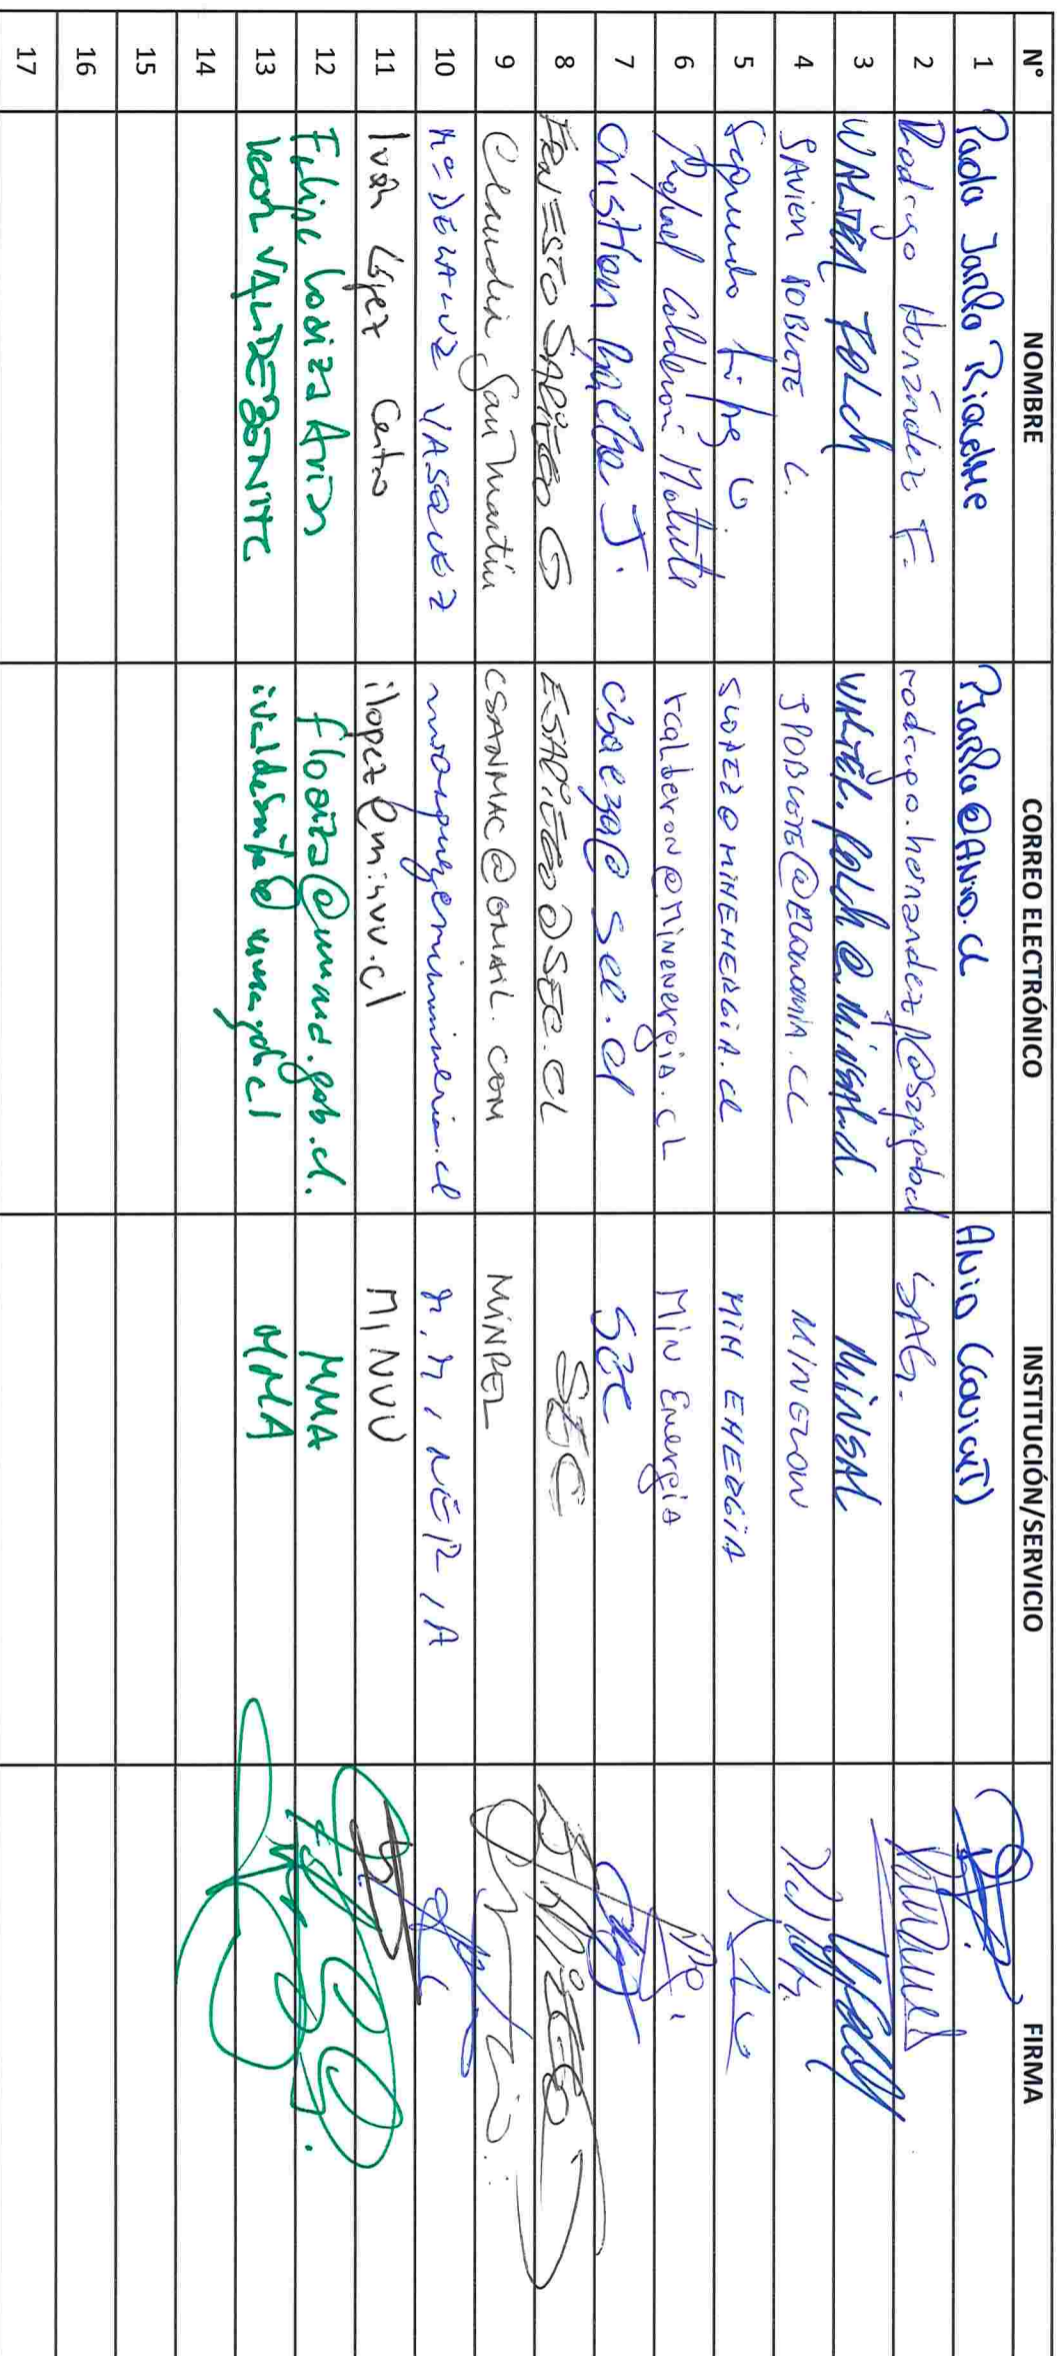 N° NOMBRE CORREO ELECTRÓNICO INSTITUCIÓN/SERVICIO FIRMA
1 Paola Jarpa Riadhe Pjarpa@ANID.cl ANID (Conicyt)
2 Rodrigo Hernández F. SAG.
3 WALTER FOLCH MINSAL
4 JAVIER POBLETE C. JPOBLETE@ECONOMIA.CL MINECON
5 MIN ENERGIA
6 Rafael Calderón Matute rcalderon@minenergia.cl Min Energía
7 Cristian Baeza J. cbaeza@sec.cl SEC
8 ERNESTO SARIEGO G ESARIEGO@SEC.CL SEC
9 Claudia San Martín CSANMAC@GMAIL.COM MINREL
10 Mª DE LA LUZ VASQUEZ mvasquez@minmineria.cl M. MINERIA
11 Iván López Cento ilopez@minvu.cl MINVU
12 Felipe Lodiza Arias flodiza@mma.gob.cl. MMA
13 VALDEBENITO ivaldebenito@mma.gob.cl MMA
14
15
16
17